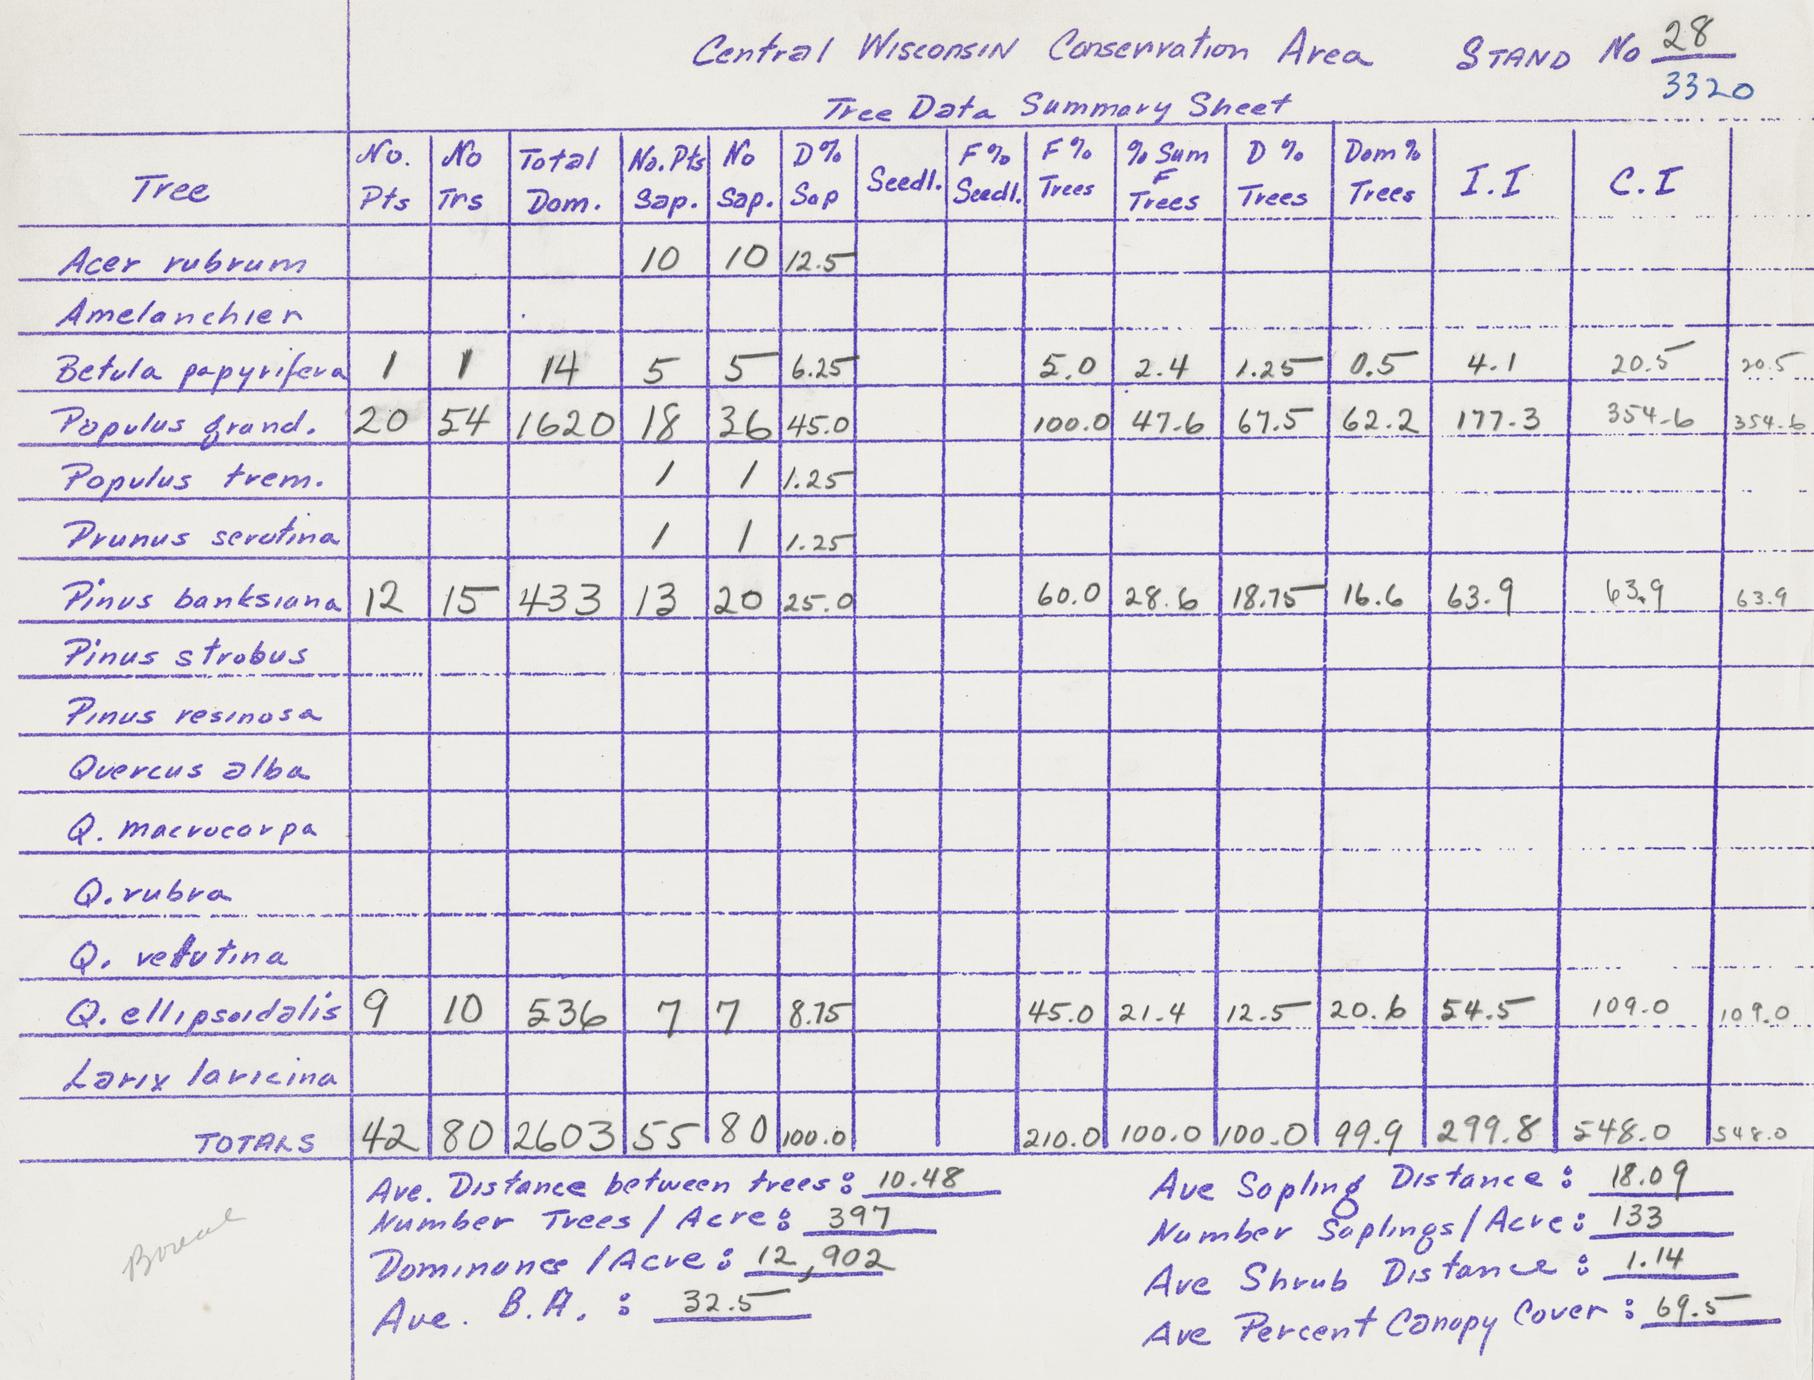 Central Wisconsin Conservation Area STAND No 28
3320
Tree Data Summary Sheet
Tree No. Pts No Trs Total Dom. No. Pts Sap. No Sap. D% Sap Seedl. F% Seedl. F% Trees % Sum F Trees D % Trees Dom % Trees I.I C.I
Acer rubrum 10 10 12.5
Amelanchier
Betula papyrifera 1 1 14 5 5 6.25 5.0 2.4 1.25 0.5 4.1 20.5 20.5
Populus grand. 20 54 1620 18 36 45.0 100.0 47.6 67.5 62.2 177.3 354.6 354.6
Populus trem. 1 1 1.25
Prunus serotina 1 1 1.25
Pinus banksiana 12 15 433 13 20 25.0 60.0 28.6 18.75 16.6 63.9 63.9 63.9
Pinus strobus
Pinus resinosa
Quercus alba
Q. macrocarpa
Q. rubra
Q. velutina
Q. ellipsoidalis 9 10 536 7 7 8.75 45.0 21.4 12.5 20.6 54.5 109.0 109.0
Larix laricina
TOTALS 42 80 2603 55 80 100.0 210.0 100.0 100.0 99.9 299.8 548.0 548.0
Ave. Distance between trees: 10.48 Ave Sapling Distance: 18.09
Number Trees / Acre: 397 Number Saplings/Acre: 133
Dominance /Acre: 12,902 Ave Shrub Distance: 1.14
Ave. B.A. : 32.5 Ave Percent Canopy Cover: 69.5
Boreal